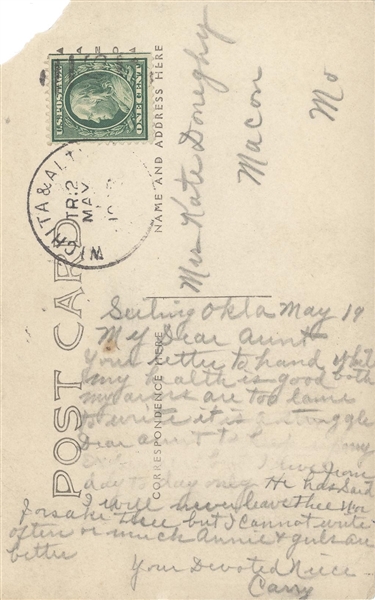 U.S. POSTAGE
ONE CENT
WICHITA & ALT
TR.2
MAY
POST CARD
CORRESPONDENCE HERE
NAME AND ADDRESS HERE
Mrs Kate Doneghy
Macon
Mo
Seiling Okla May 19
My Dear Aunt
Your letter to hand while
my health is good both
my arms are too lame
to write it is a struggle
Dear aunt
I live from
day to day only He has Said
I will never leave thee Nor
forsake Thee but I cannot write
often or much Annie & girls are
better
Your Devoted Niece
Carry